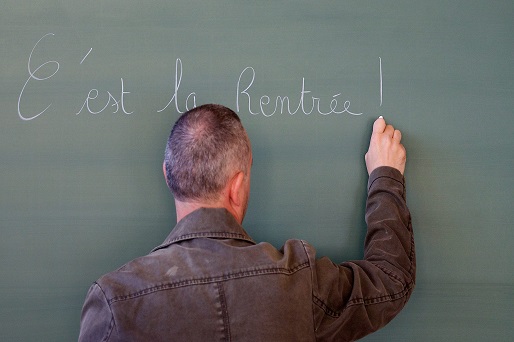 C'est la Rentrée !